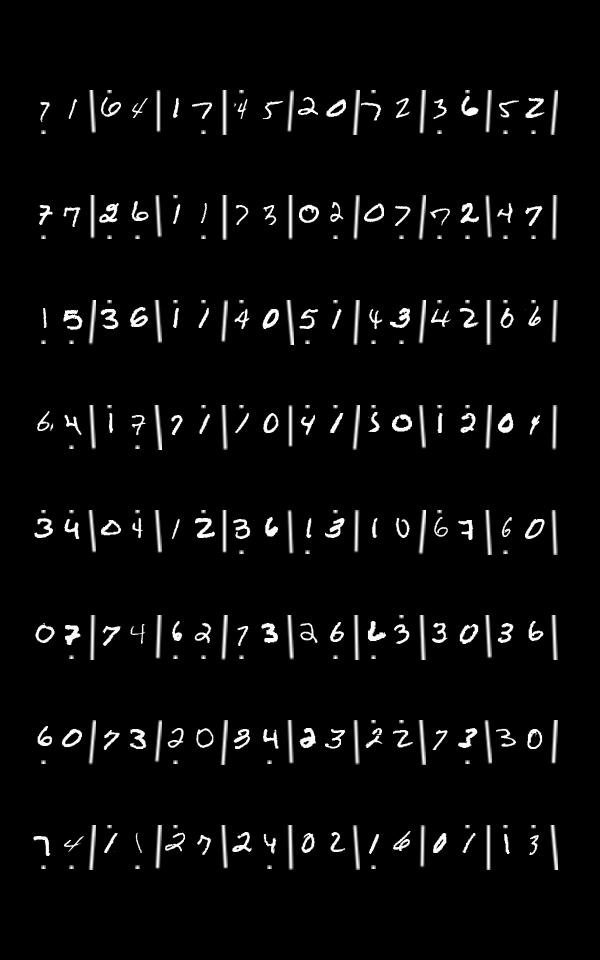 7 1 | 6 4 | 1 7 | 4 5 | 2 0 | 7 2 | 3 6 | 5 2 |
7 7 | 2 6 | 1 1 | 7 3 | 0 2 | 0 7 | 7 2 | 4 7 |
1 5 | 3 6 | 1 1 | 4 0 | 5 1 | 4 3 | 4 2 | 0 6 |
6 4 | 1 7 | 7 1 | 1 0 | 4 1 | 5 0 | 1 2 | 0 |
3 4 | 0 4 | 1 2 | 3 6 | 1 3 | 1 0 | 6 7 | 6 0 |
0 7 | 7 4 | 6 2 | 7 3 | 2 6 | 6 3 | 3 0 | 3 6 |
6 0 | 7 3 | 2 0 | 3 4 | 2 3 | 2 2 | 7 3 | 3 0 |
7 4 | 1 1 | 2 7 | 2 4 | 0 2 | 1 6 | 0 1 | 1 3 |